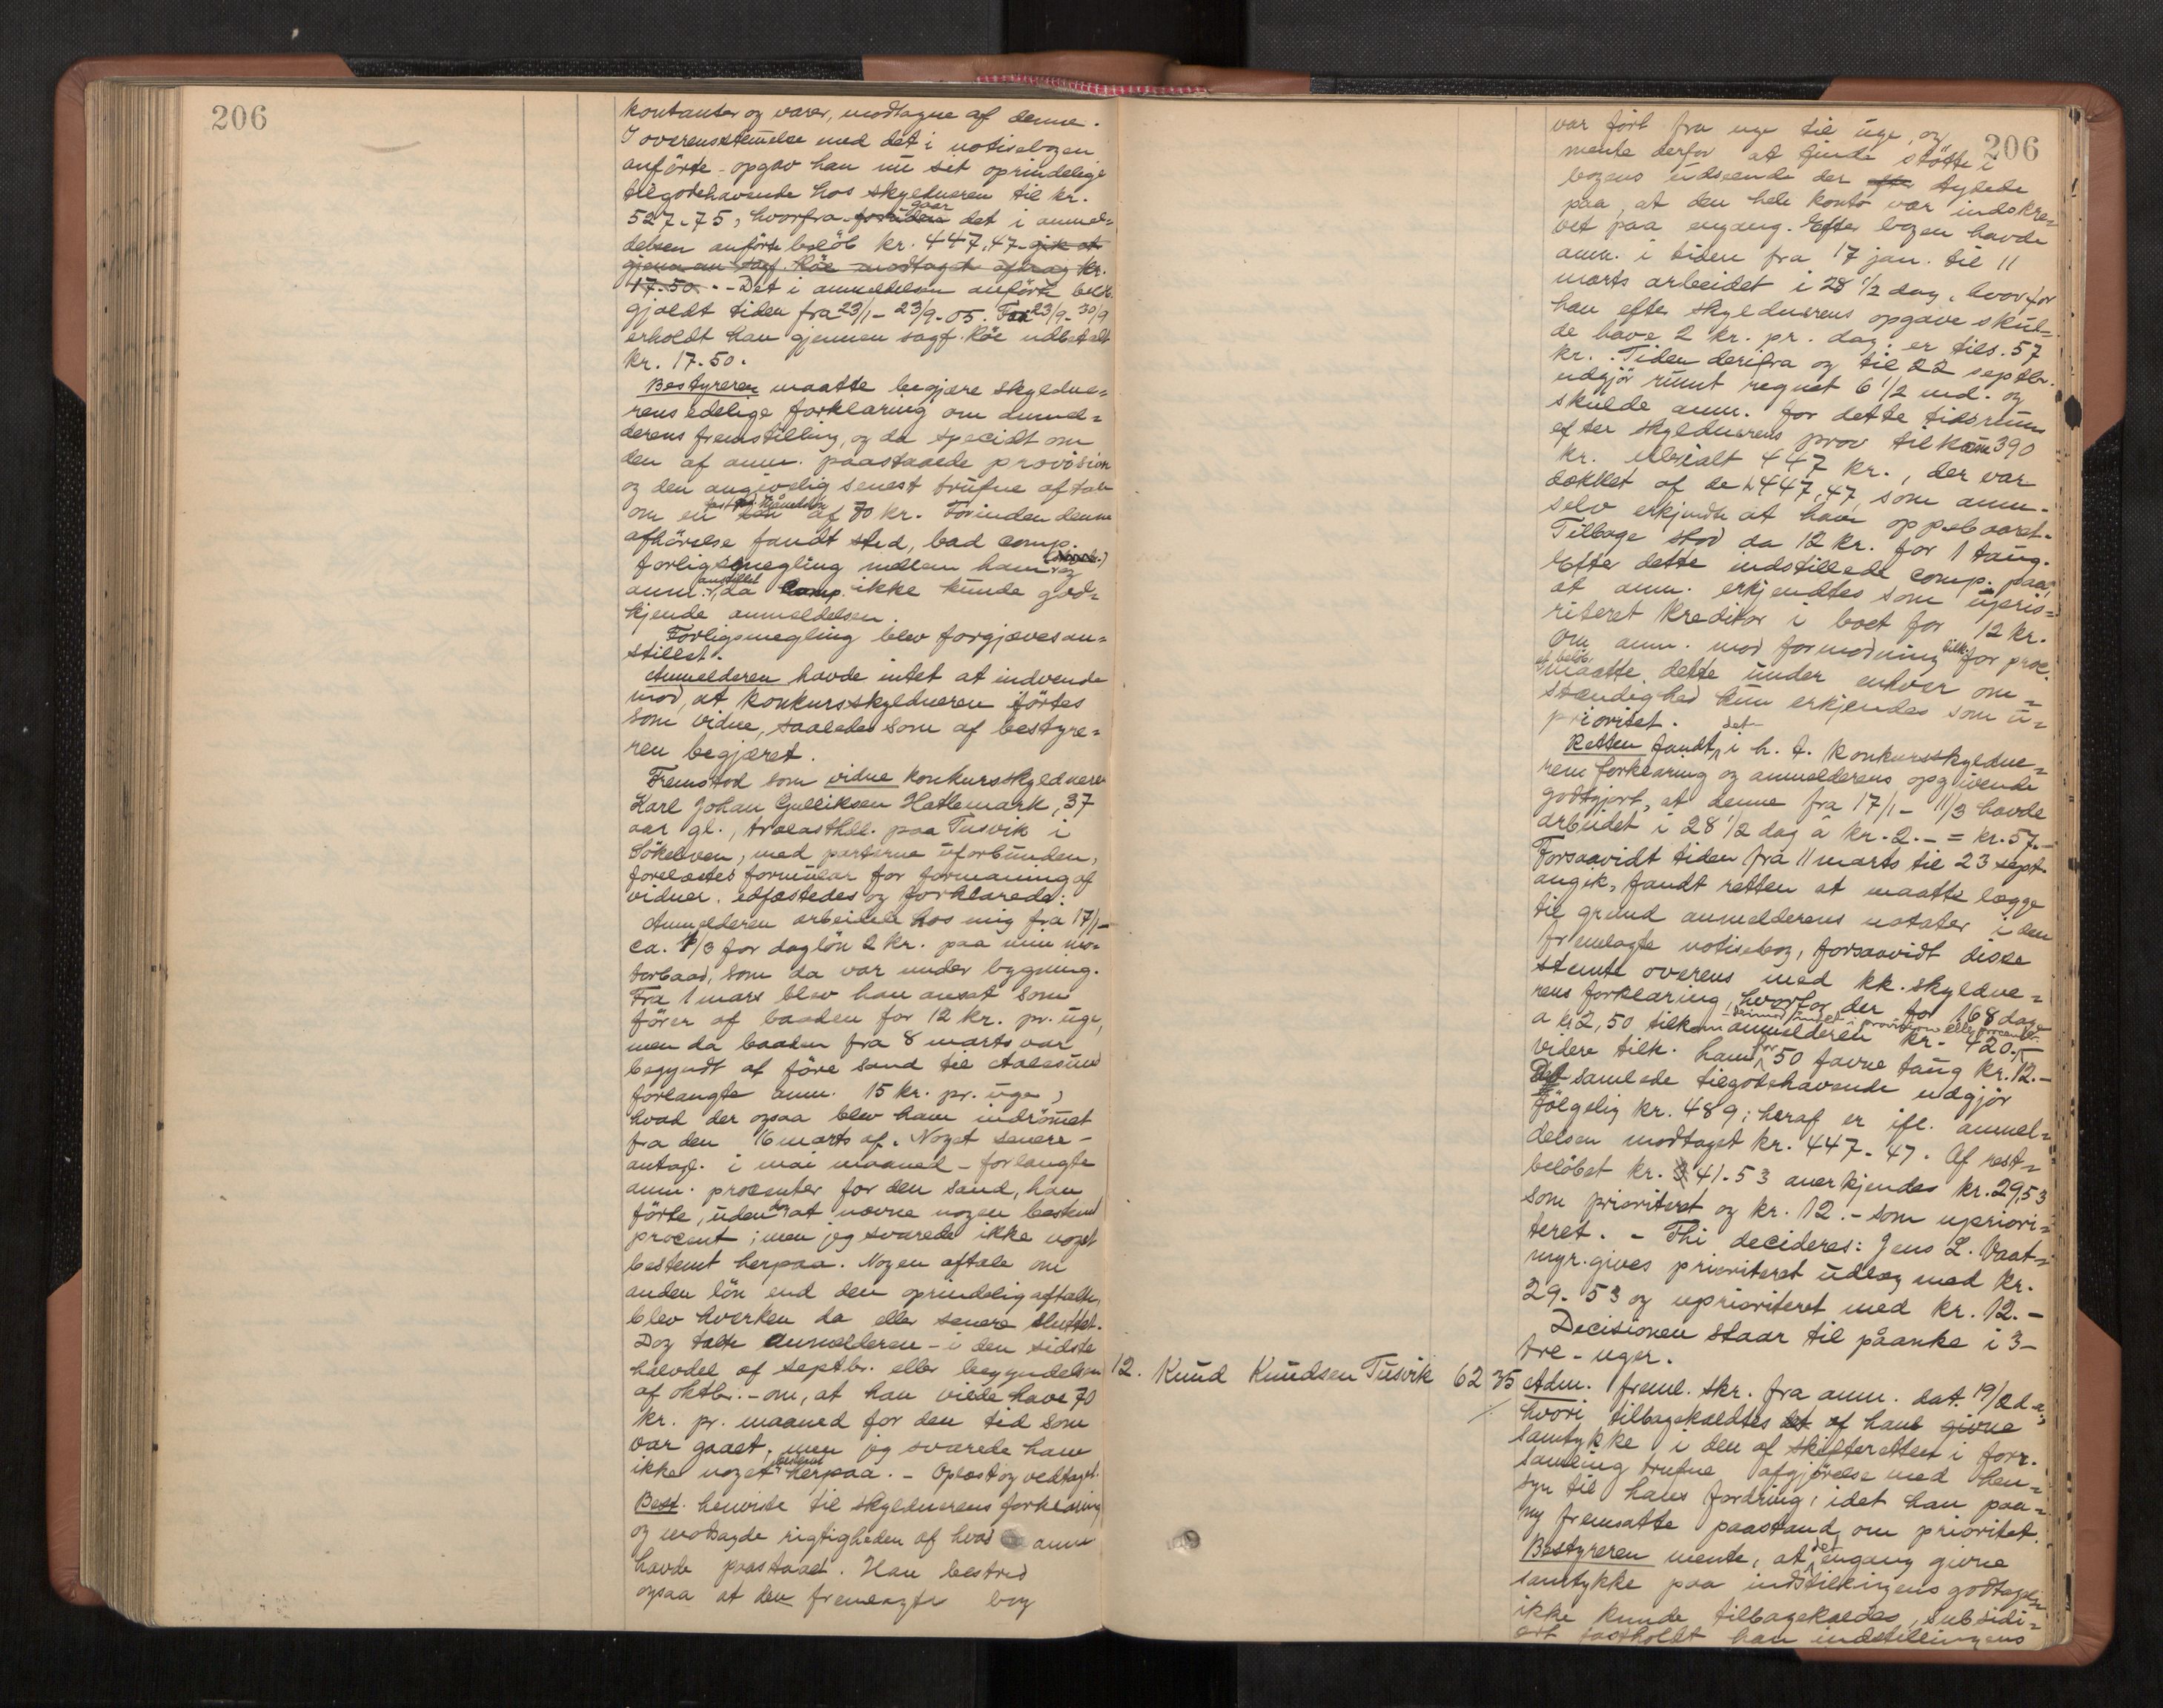 206
kontanter og varer, modtagne af denne.
I overensstemmelse med det i notisebogen
anförte opgav han nu sit oprindelige
tilgodehavende hos skyldneren til kr.
527.75, hvorfra foruden gaar det i anmel-
delsen anförte belöb kr. 447,47 gik at
gjennem sagf. Röe modtaget afdrag kr.
17.50. - Det i anmeldelsen anförte belöb
gjaldt tiden fra 23/1 - 23/9-05. Fra 23/9-30/9
erholdt han gjennem sagf. Röe udbetalt
kr. 17.50.
Bestyreren maatte begjære skyldne-
rens edelige forklaring om anmel-
derens fremstilling, og da specielt om
den af anm. paastaaede provision
og den angivelig senest trufne aftale
om en fast månedslön af 70 kr. Forinden denne
afhörelse fandt sted, bad comp.
forligsmegling mellem ham og
anm. anstillet, da comp. ikke kunde god-
kjende anmeldelsen.
Forligsmegling blev forgjæves an-
stillet.
Anmelderen havde intet at indvende
mod, at konkursskyldneren förtes
som vidne, saaledes som af bestyre-
ren begjæret.
Fremstod som vidne konkursskyldneren
Karl Johan Gulliksen Hatlemark, 37
aar gl., trælasthdl. paa Tusvik i
Sökelven, med parterne uforbunden,
forelæstes formular for formaning af
vidner, edfæstedes og forklarede:
Anmelderen arbeidede hos mig fra 17/1 -
ca. 1/3 for daglön 2 kr. paa min mo-
torbaad, som da var under bygning.
Fra 1 mars blev han ansat som
förer af baaden for 12 kr. pr. uge,
men da baaden fra 8 marts var
begyndt at före sand til Aalesund
forlangte anm. 15 kr. pr. uge,
hvad der ogsaa blev ham indrömmet
fra den 16 marts af. Noget senere -
antagl. i mai maaned - forlangte
anm. procenter for den sand, han
förte, uden dog at nævne nogen bestemt
procent; men jeg svarede ikke noget
bestemt herpaa. Nogen aftale om
anden lön end den oprindelig aftalte,
blev hverken da eller senere sluttet.
Dog talte anmelderen - i den sidste
halvdel af septbr. eller begyndelsen
af oktbr. - om, at han vilde have 70
kr. pr. maaned for den tid som
var gaaet, men jeg svarede ham
ikke noget bestemt herpaa. - Oplæst og vedtaget.
Best. henviste til skyldnerens forklaring
og modsagde rigtigheden af hvad anm
havde paastaaet. Han bestred
ogsaa at den fremlagte bog
206
var fört fra uge til uge, og
mente derfor at finde stötte i
bogens udseende der tydede
paa, at den hele konto var indskre-
vet paa engang. Efter bogen havde
anm. i tiden fra 17 jan. til 11
marts arbeidet i 28 1/2 dag, hvorfor
han efter skyldnerens opgave skul-
de have 2 kr. pr. dag; er tils. 57
kr. Tiden derifra og til 22 septbr.
udgjör rundt regnet 6 1/2 md. og
skulde anm. for dette tidsrum
efter skyldnerens prov tilkomme 390
kr. ialt 447 kr., der var
dækket af de kr 447,47, som anm.
selv erkjendte at have oppebaaret.
Tilbage stod da 12 kr. for 1 taug.
Efter dette indstillede comp. paa,
at anm. erkjendtes som uprio-
riteret kreditor i boet for 12 kr.
Om anm. mod formodning tilk. for proc.
et belöb maatte dette under enhver om-
stændighed kun erkjendes som u-
prioritet.
Retten fandt det i h. t. konkursskyldne-
rens forklaring og anmelderens opgivende
godtgjort, at denne fra 17/1 - 11/3 havde
arbeidet i 28 1/2 dag â kr. 2.- = kr. 57.-
Forsaavidt tiden fra 11 marts til 23 sept.
angik, fandt retten at maatte lægge
til grund anmelderens notater i den
fremlagte notisebog, forsaavidt disse
stemte overens med kk. skyldne-
rens forklaring, hvorfor der for 168 dage
a kr 2,50 tilkom anmelderen kr. 420.-
derimod intet i provision eller procenter.
videre tilk. ham for 50 favne taug kr. 12.-
Det samlede tilgodehavende udgjör
fölgelig kr. 489; heraf er ifl. anmel-
delsen modtaget kr. 447.47. Af rest-
belöbet kr. 41.53 anerkjendes kr. 29,53
som prioriteret og kr. 12.- som upriori-
teret. - Thi decideres: Jens L. Vaat-
myr. gives prioriteret udlæg med kr.
29.53 og uprioriteret med kr. 12.-
Decisionen staar til påanke i 3-
tre - uger.
12. Knud Knudsen Tusvik 62 35 Adm. freml. skr. fra anm. dat. 19/2 d.a.,
hvori tilbagekaldtes det af ham givne
samtykke i den af skifteretten i forr.
samling trufne afgjörelse med hen-
syn til hans fordring, idet han paa-
ny fremsatte paastand om prioritet.
Bestyreren mente, at det engang givne
samtykke paa indstillingens godtagelse
ikke kunde tilbagekaldes, subsidi-
ært fastholdt han indstillingens